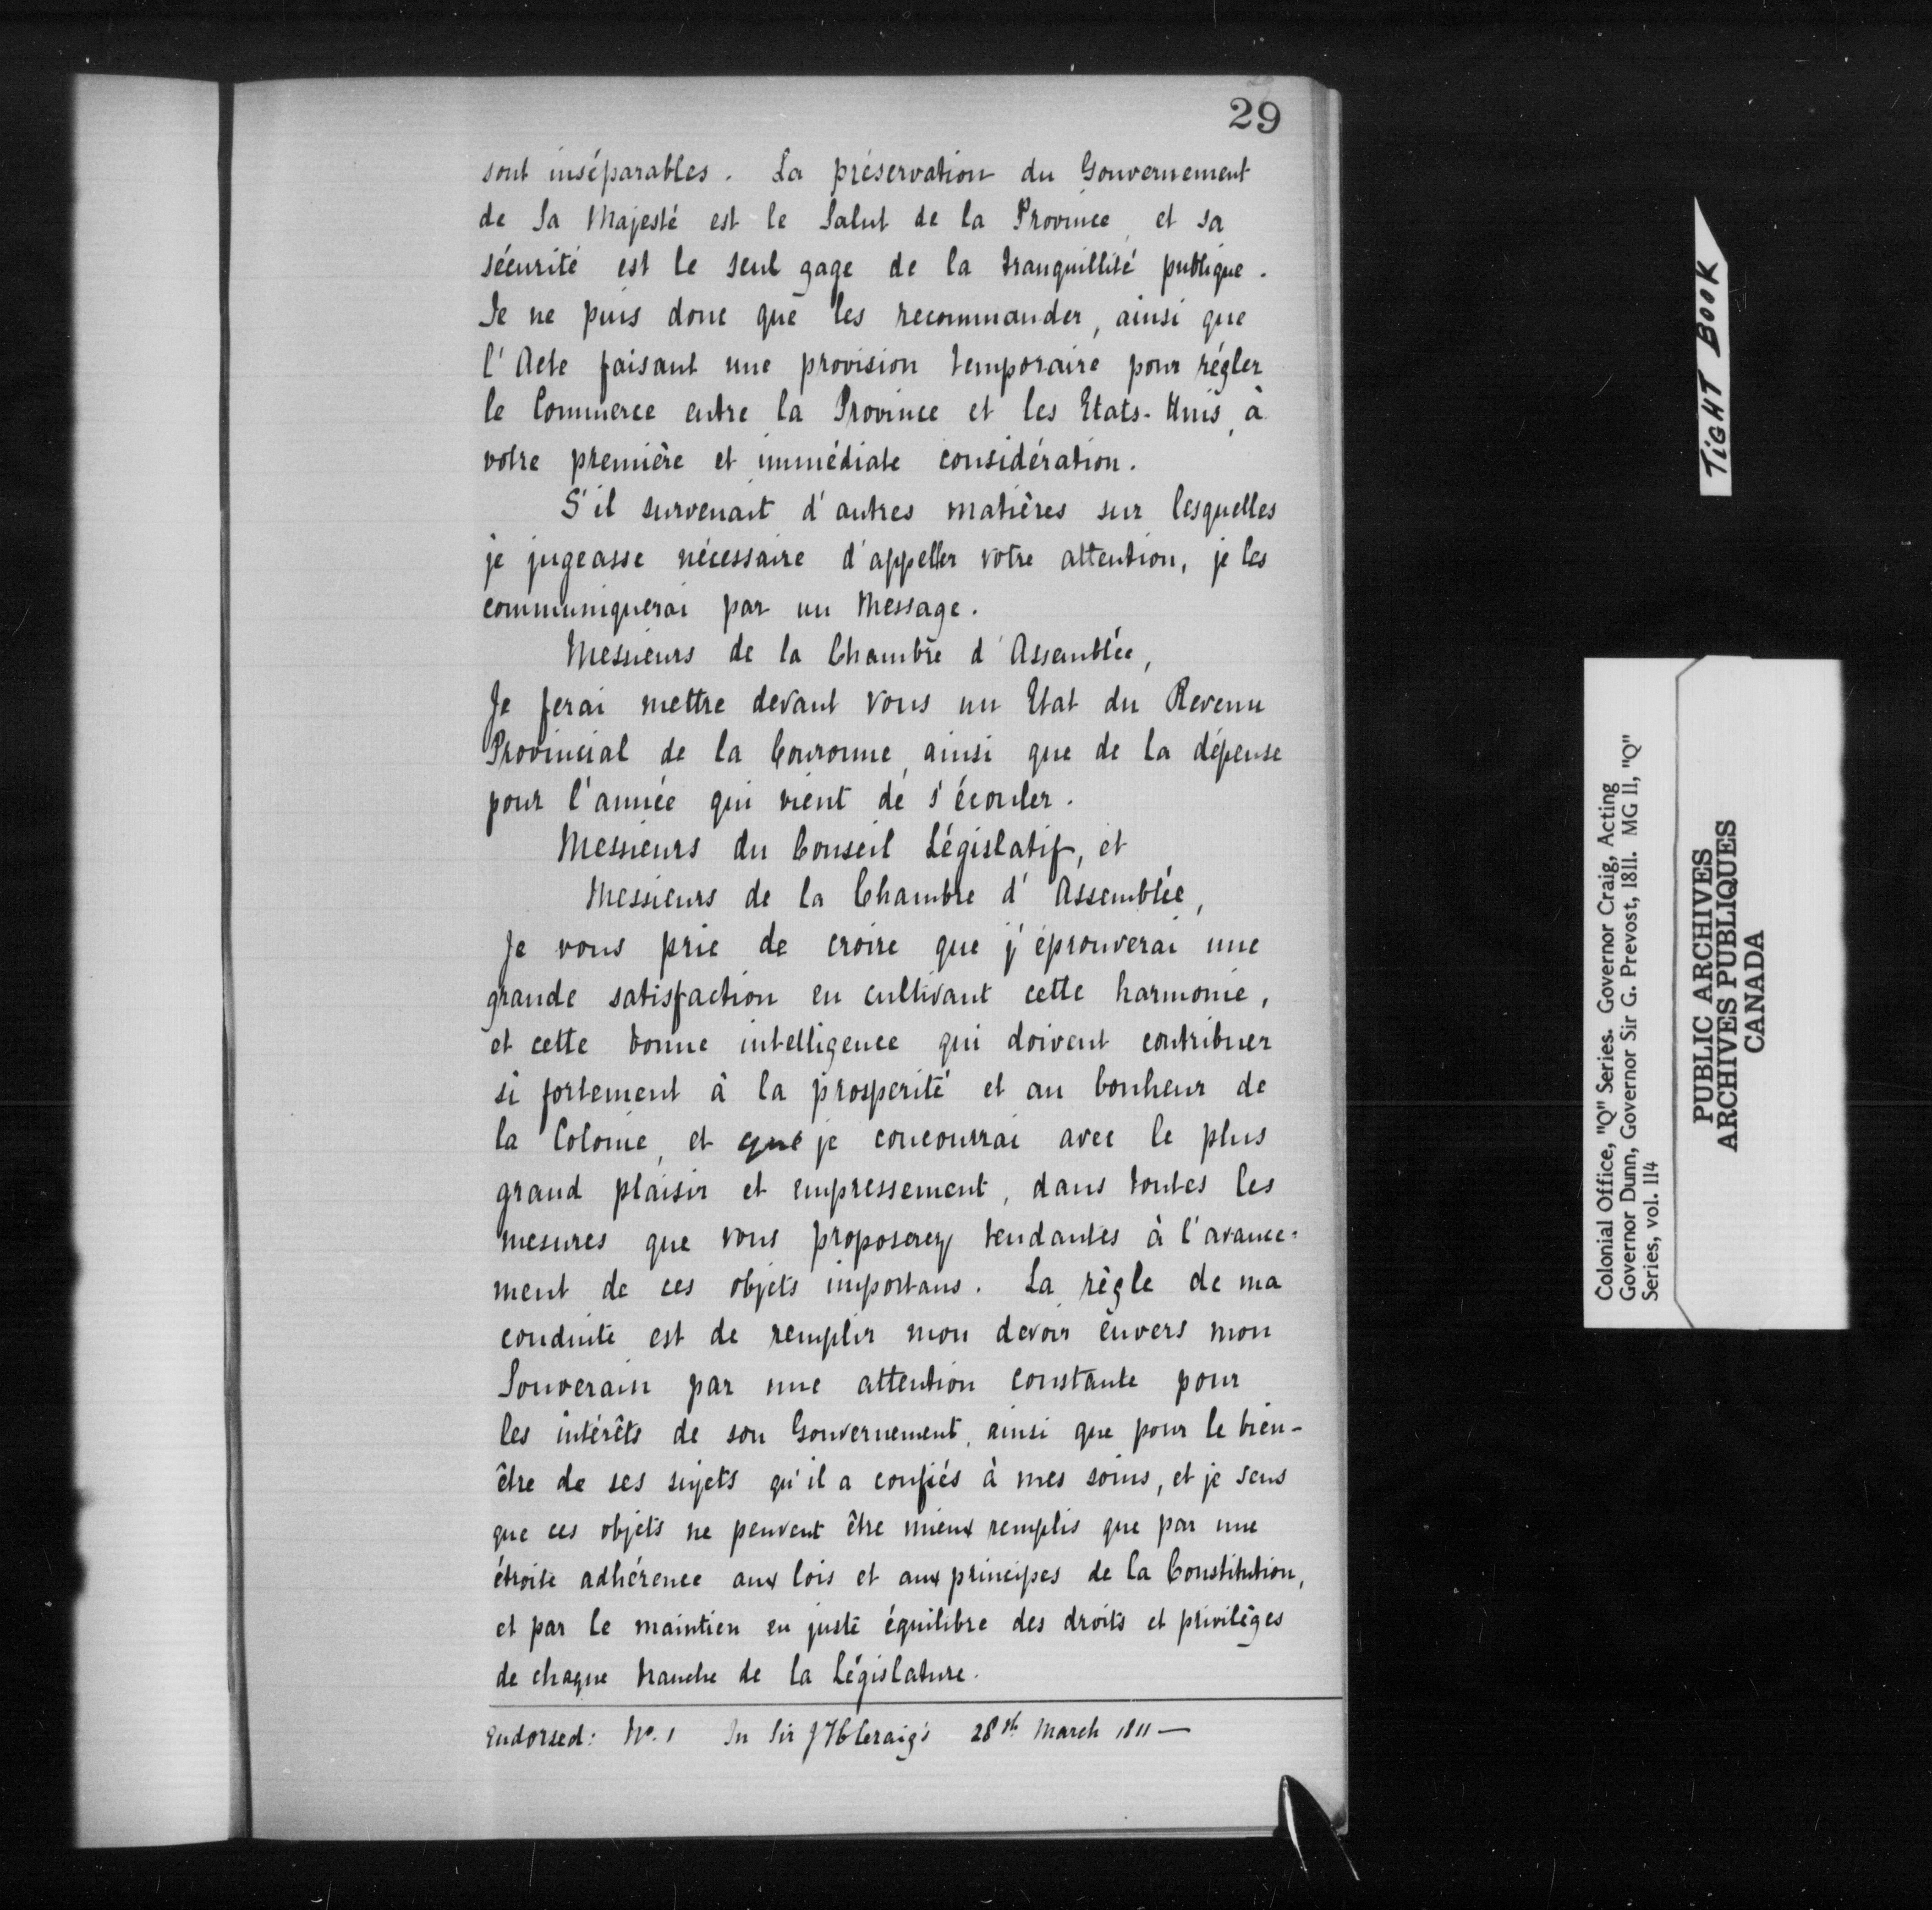 29
sont inséparables. La préservation du Gouvernement
de Sa Majesté est le Salut de la Province, et sa
sécurité est le seul gage de la tranquillité publique.
Je ne puis donc que les recommander, ainsi que
l'Acte faisant une provision temporaire pour régler
le Commerce entre la Province et les Etats-Unis, à
votre première et immédiate considération.
S'il survenait d'autres matières sur lesquelles
je jugeasse nécessaire d'appeller votre attention, je les
communiquerai par un Message.
Messieurs de la Chambre d'Assemblée,
Je ferai mettre devant vous un Etat du Revenu
Provincial de la Couronne, ainsi que de la dépense
pour l'année qui vient de s'écouler.
Messieurs du Conseil Législatif, et
Messieurs de la Chambre d'Assemblée,
Je vous prie de croire que j'éprouverai une
grande satisfaction en cultivant cette harmonie,
et cette bonne intelligence qui doivent contribuer
si fortement à la prosperité et au bonheur de
la Colonie, et que je concourrai avec le plus
grand plaisir et empressement, dans toutes les
mesures que vous proposerez tendantes à l'avance-
ment de ces objets importans. La règle de ma
conduite est de remplir mon devoir envers mon
Souverain par une attention constante pour
les intérêts de son Gouvernement, ainsi que pour le bien-
être de ses sujets qu'il a confiés à mes soins, et je sens
que ces objets ne peuvent être mieux remplis que par une
étroite adhérence aux lois et aux principes de la Constitution,
et par le maintien en juste équilibre des droits et privilèges
de chaque branche de la Législature.
Endorsed: No. 1 In Sir J H Craig's 28th March 1811 —
TIGHT BOOK
Colonial Office, "Q" Series. Governor Craig, Acting
Governor Dunn, Governor Sir G. Prevost, 1811. MG 11, "Q"
Series, vol. 114
PUBLIC ARCHIVES
ARCHIVES PUBLIQUES
CANADA